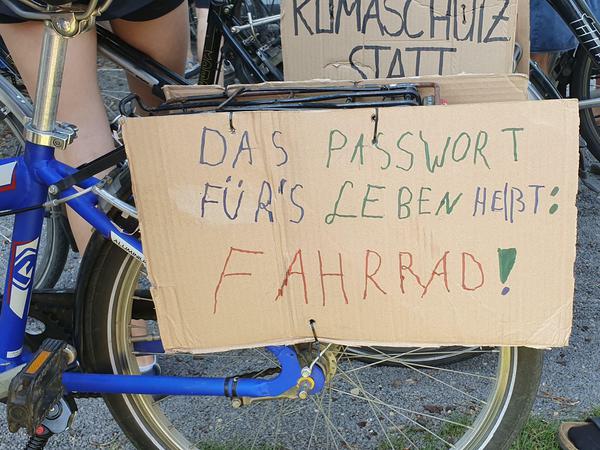 KLIMASCHUTZ
STATT
DAS PASSWORT
FÜR'S LEBEN HEIßT:
FAHRRAD!